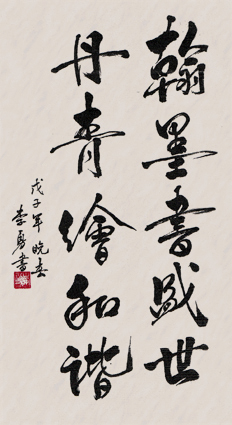 翰墨書盛世
丹青繪和谐
戊子年晚春
李勇書